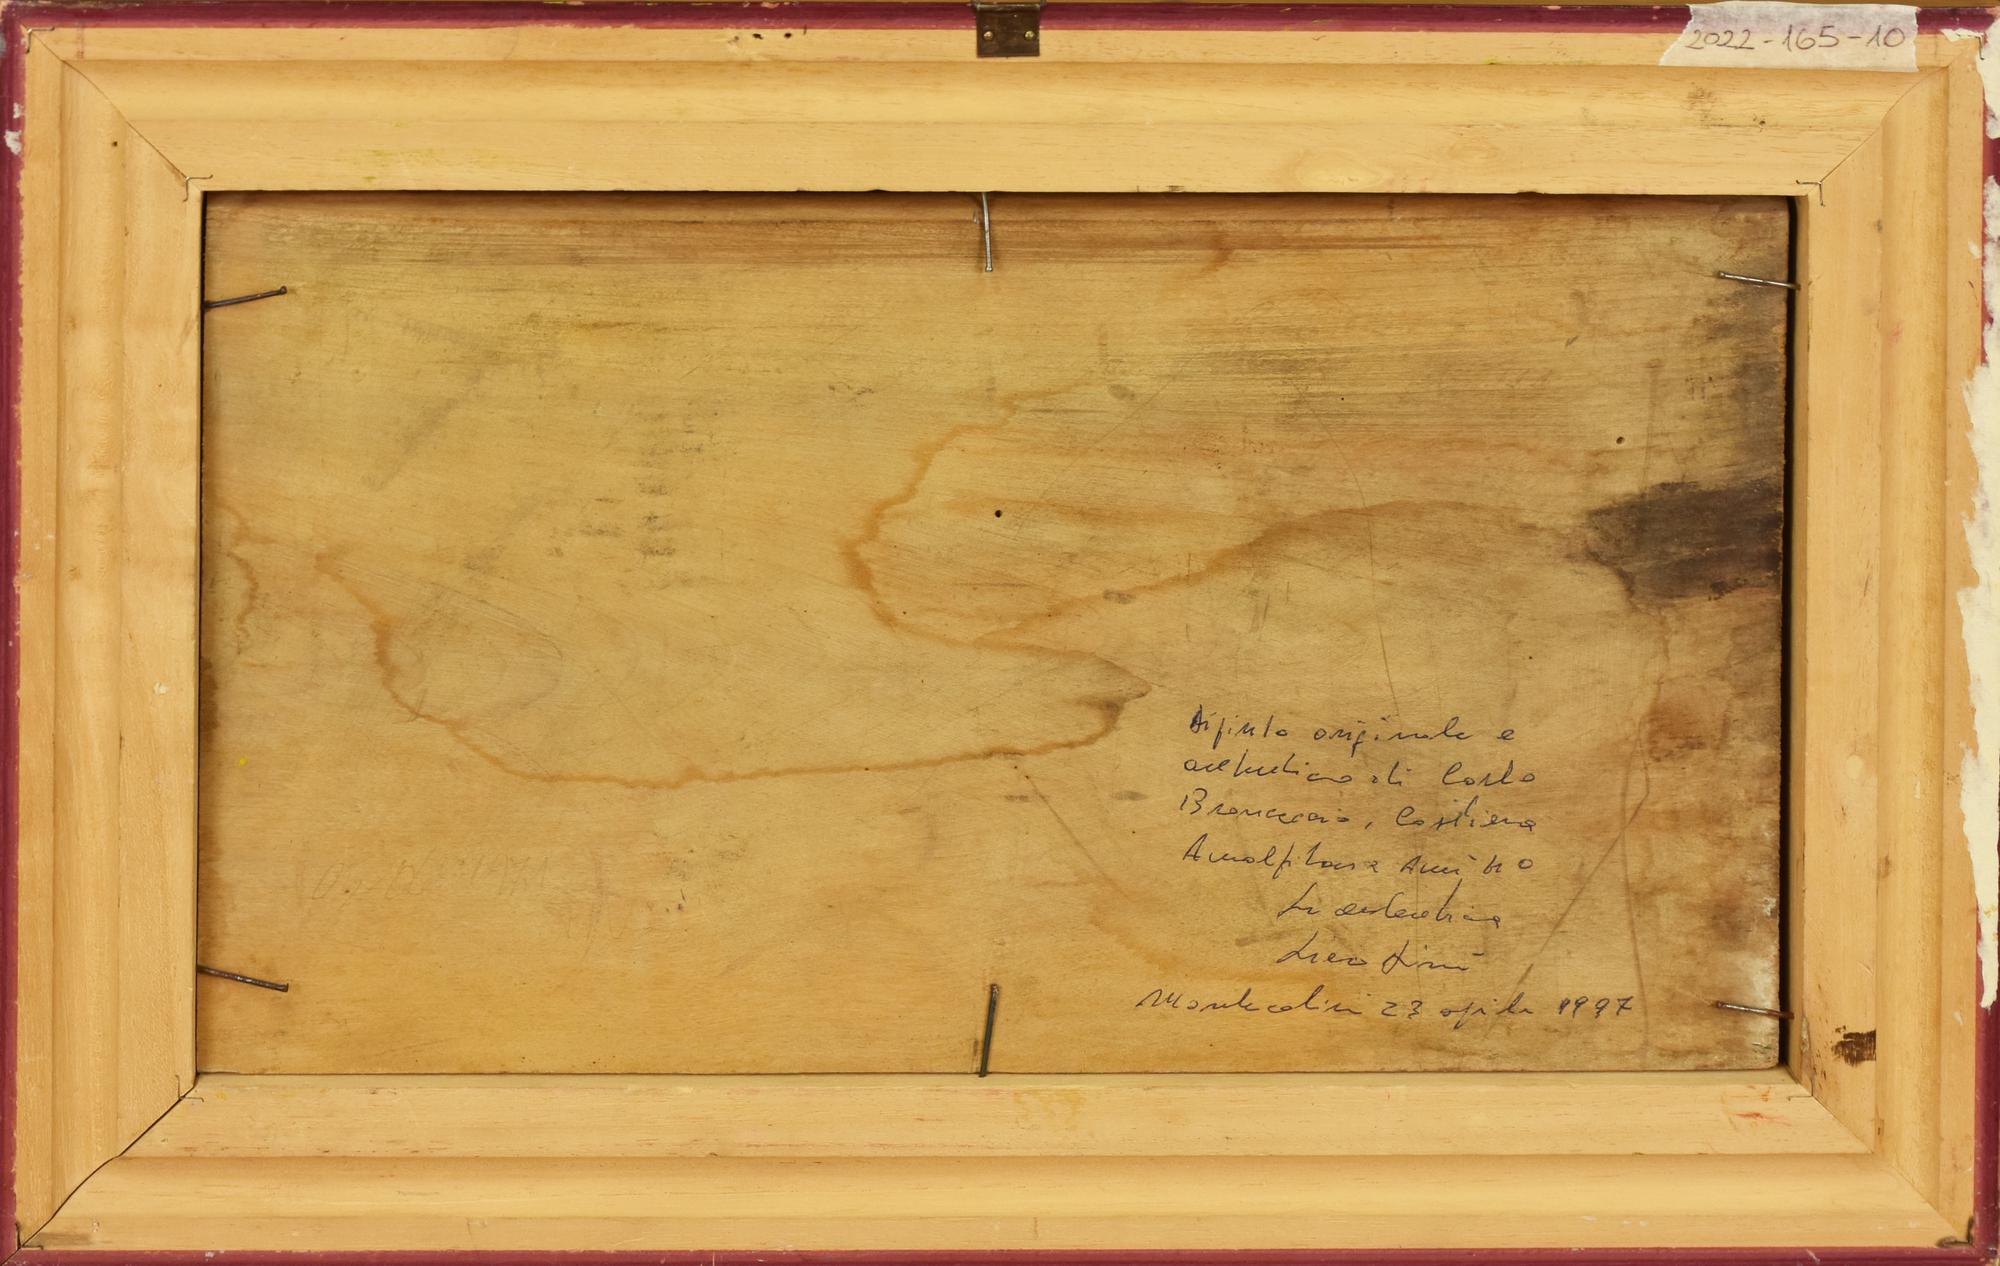 2022-165-10
Dipinto originale e
autentico di Carlo
Brancaccio, Costiera
Amalfitana
In autentica
Montecatini 23 aprile 1997